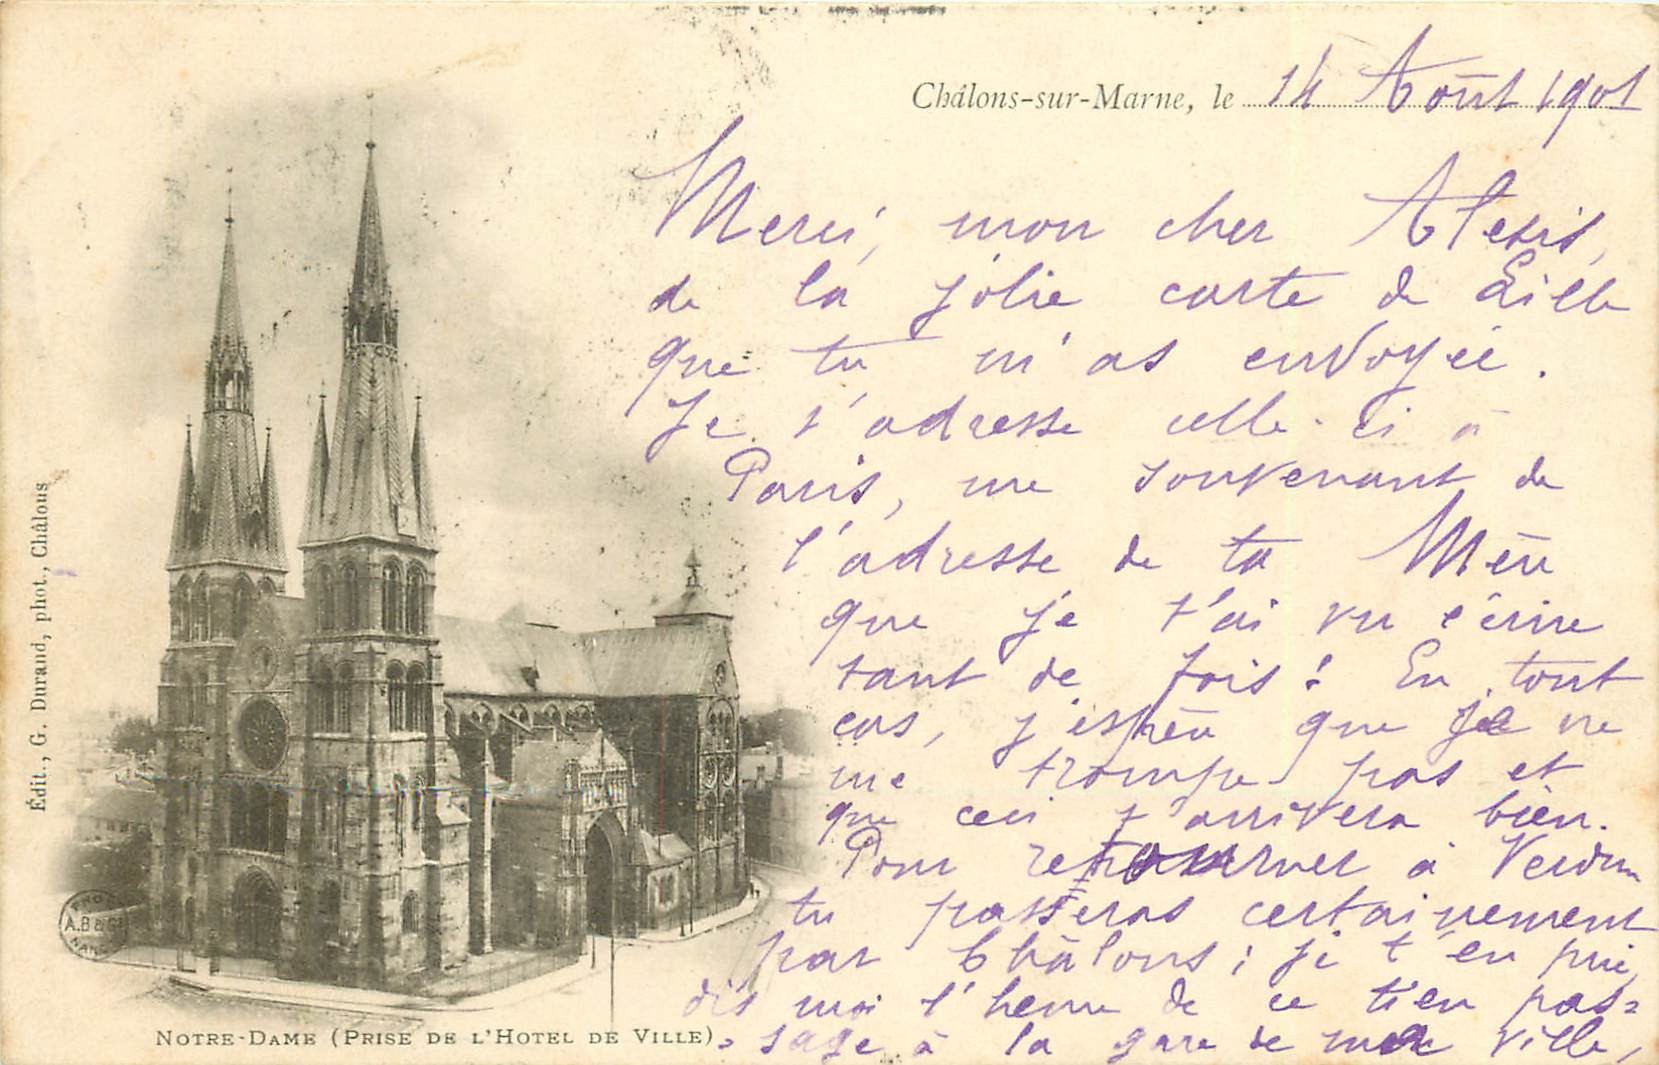 Châlons-sur-Marne, le 14 Août 1901
Merci, mon cher Alexis,
de la jolie carte de Lille
que tu m'as envoyée.
Je t'adresse celle-ci à
Paris, me souvenant de
l'adresse de ta Mère
que je t'ai vu écrire
tant de fois! En tout
cas, j'espère que je ne
me trompe pas et
que ceci t'arrivera bien.
Pour retourner à Verdun
tu passeras certainement
par Châlons; je t'en prie,
dis moi l'heure de ce tien pas=
sage à la gare de ma ville,
Édit., G. Durand, phot., Châlons
A.B & Cie
NANCY
NOTRE-DAME (PRISE DE L'HOTEL DE VILLE)